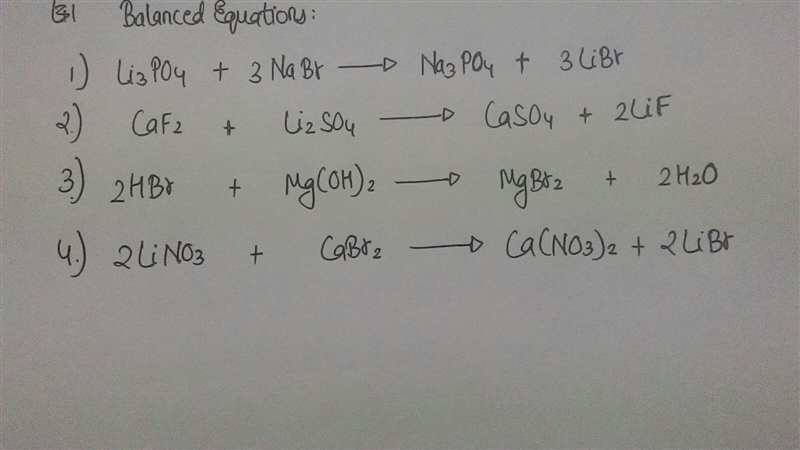 Q1 Balanced Equations:
1) Li3PO4 + 3NaBr → Na3PO4 + 3LiBr
2.) CaF2 + Li2SO4 → CaSO4 + 2LiF
3.) 2HBr + Mg(OH)2 → MgBr2 + 2H2O
4.) 2LiNO3 + CaBr2 → Ca(NO3)2 + 2LiBr